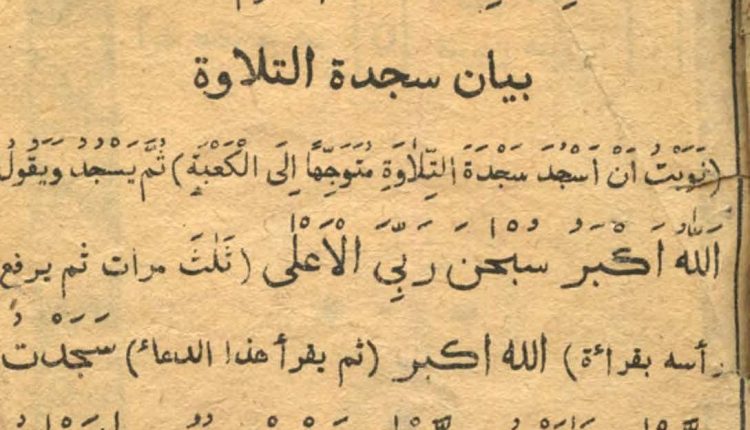 بيان سجدة التلاوة
(نَوَيْتُ اَنْ اَسْجُدَ سَجْدَةَ التِّلَاوَةِ مُتَوَجِّهًا اِلَى الْكَعْبَةِ) ثُمَّ يَسْجُدُ وَيَقُولُ
اَللّٰهُ اَكْبَرُ سُبْحٰنَ رَبِّيَ الْاَعْلٰى (ثَلٰثَ مرات ثم يرفع
رأسه بقراءة) الله اكبر (ثم يقرأ هذا الدعاء) سَجَدْتُ